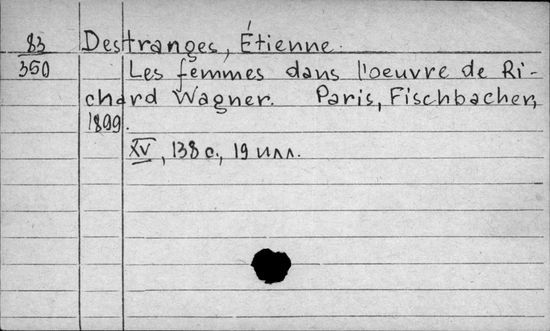 83 Destranges, Étienne.
350 Les femmes dans l'oeuvre de Ri-
chard Wagner. Paris, Fischbacher,
1899.
XV, 138 с., 19 илл.